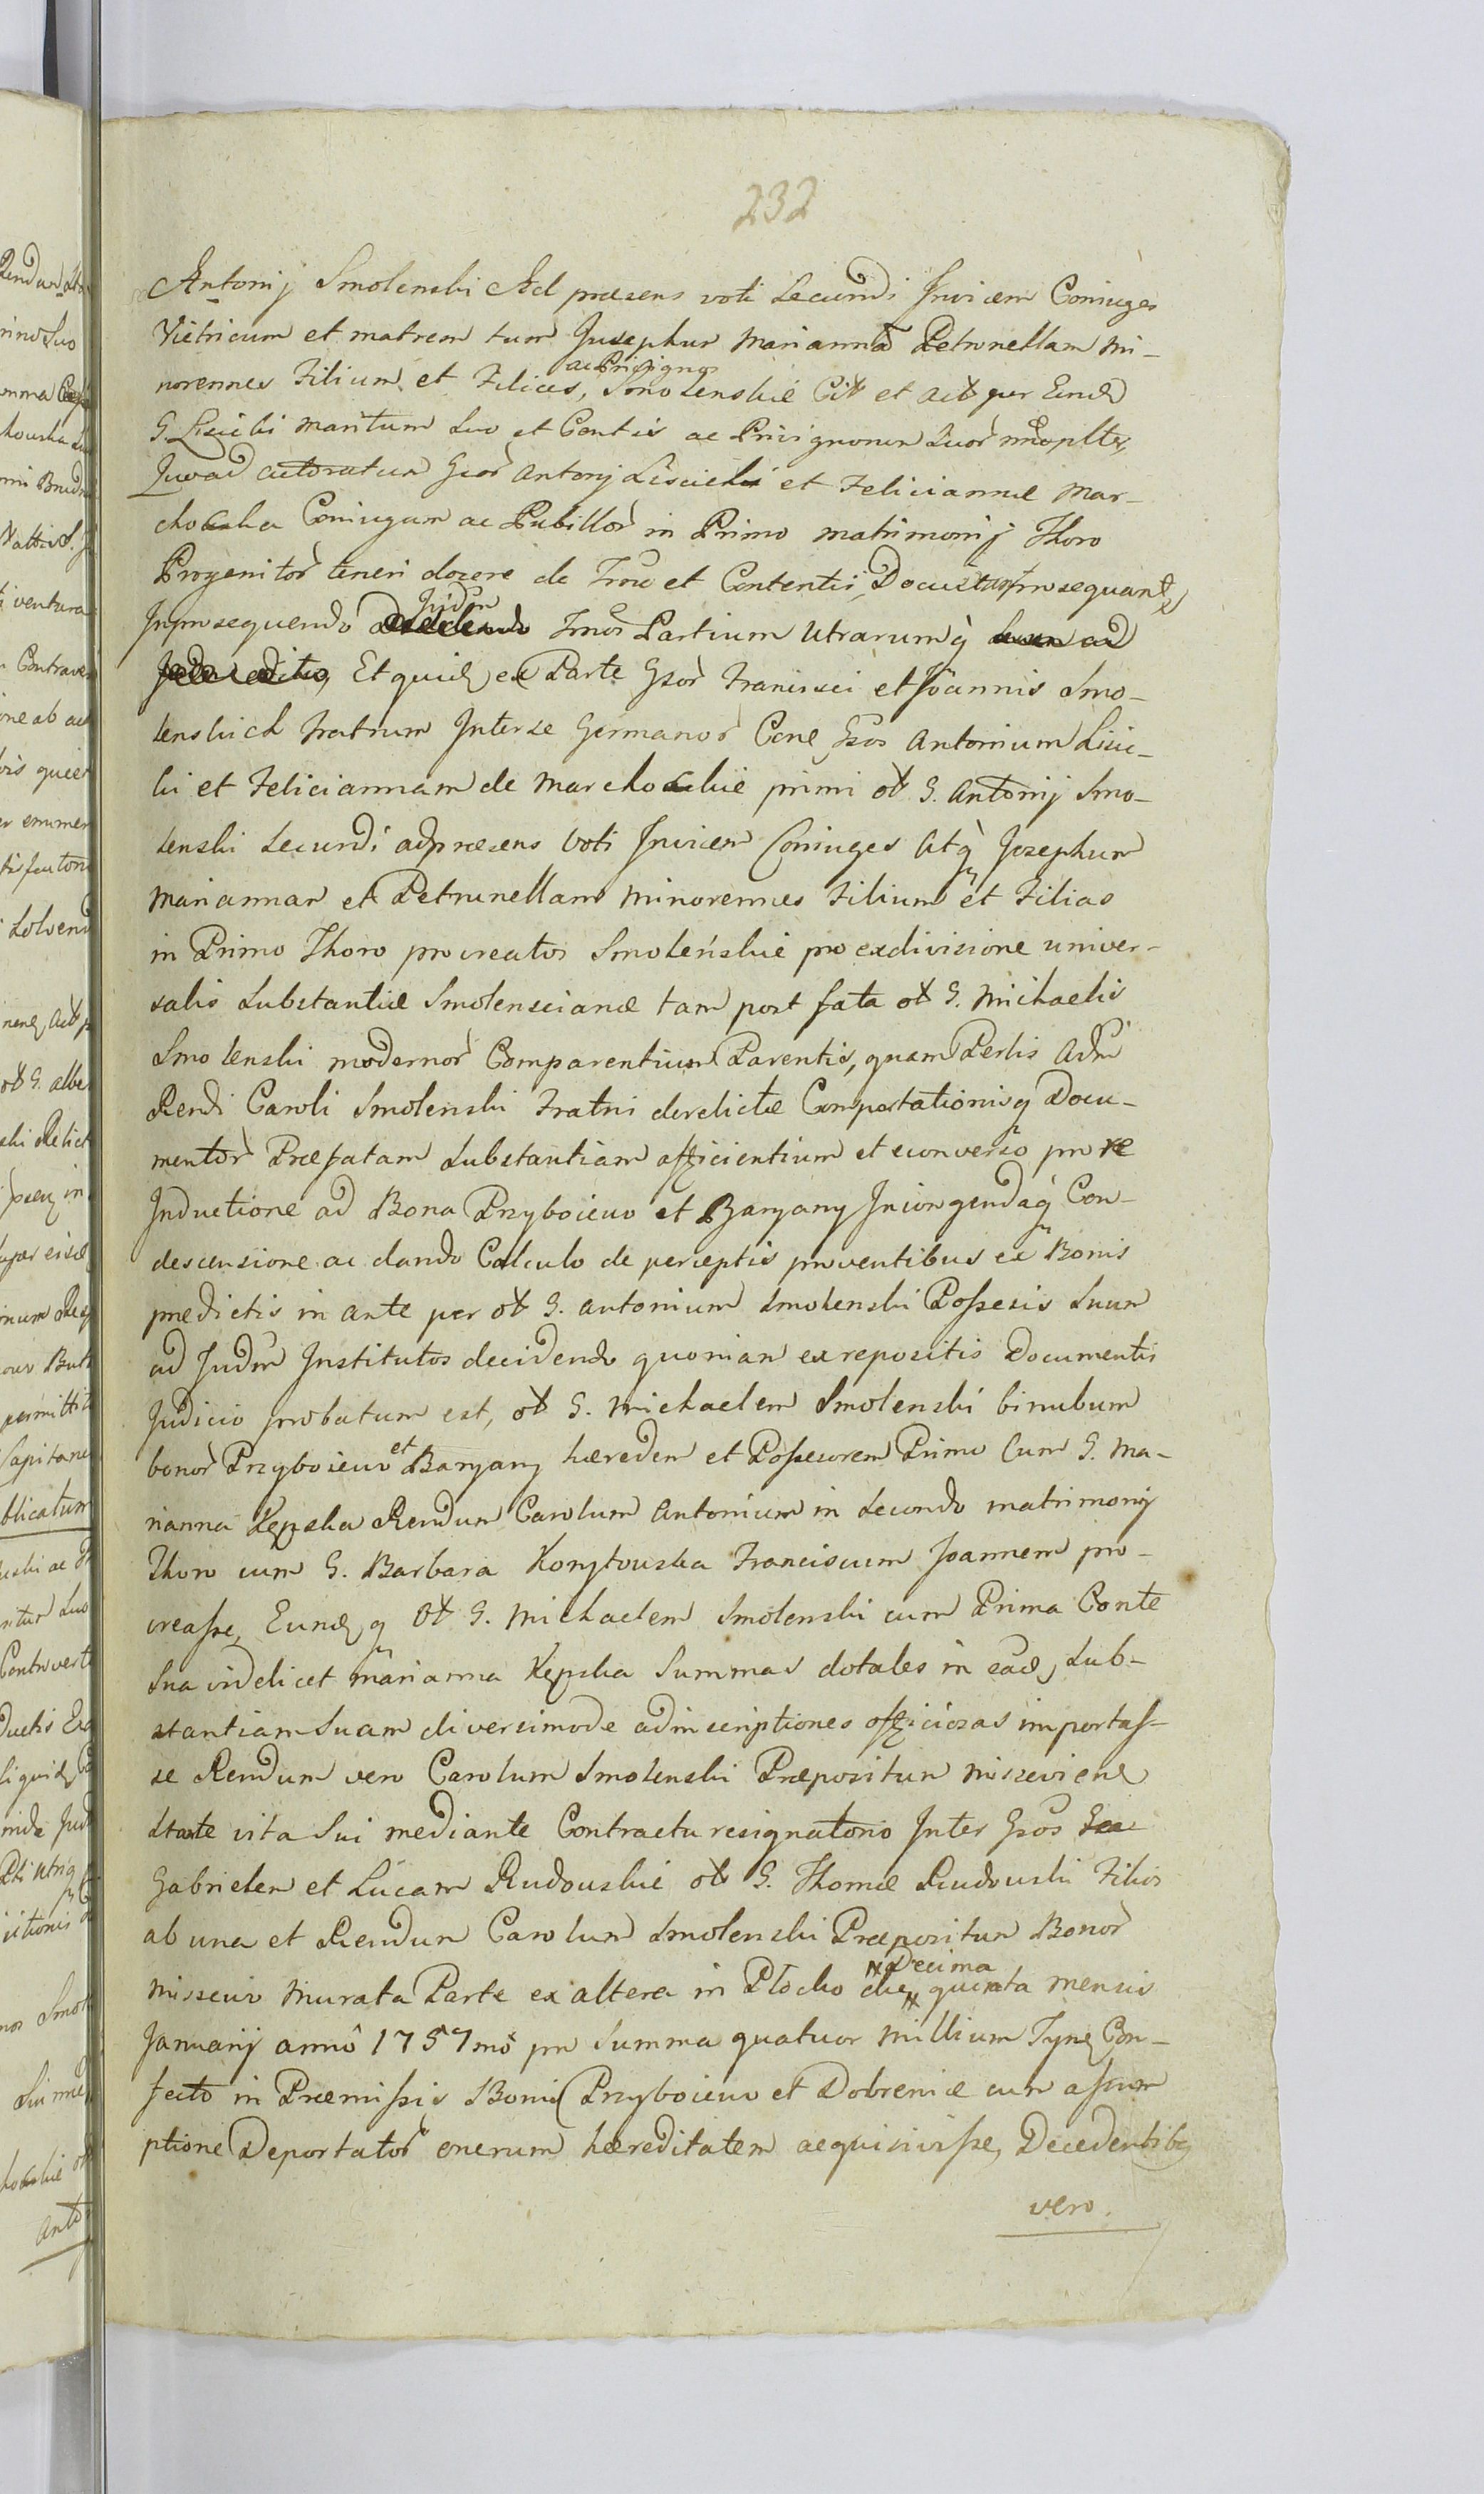 232
Antonij Smolenski Ad præsens voti Secundi Invicem Coniuges
Vitricum et matrem tum Josephum Mariannã Petronellam mi-
norennes Filium et Filias, ac Privignos Smolenskie Citt et Actt per Eund
G. Lisicki maritum Suo et Contis ac Privignorum Suor noĩe
Quoad Actoratum Gsor Antonij Lisicki et Feliciannæ Mar-
chocka Coniugum ac Pubillor in Primo matrimonij Thoro
Progenitor teneri docere de Trou et Contentis, Docuit prosequant
In prosequendo Judm Tmor Partium Utrarumq
Et quid ex Parte Gsor Francisci et Joannis Smo-
lenskich Fratrum Inter se Germanor Cone Gsos Antonium Lisic-
ki et Feliciannam de Marchockie primi ot G. Antonij Smo-
lenski Secundi adpræsens Voti Invicem Coniuges Atq Josephum
Mariannam et Petrunellam Minorennes Filium et Filias
in Primo Thoro procreatos Smoleńskie pro exdivisione univer-
salis Substantiæ Smolenscianæ tam post fata ot G. Michaelis
Smolenski modernor Comparentium Parentis, quam Perlis Adm
Rendi Caroli Smolenski Fratri derelictæ Comportationisq Docu-
mentor Præfatam Substantiam afficientium et econverso pro re
Inductione ad Bona Przyboiewo et Baryany Iniongendaq Con-
descensione ac dando Calculo de perceptis proventibus ex Bonis
prædictis in ante per ot G. Antonium Smolenski Possesis Suum
ad Judm Institutos decidendo quoniam ex repositis Documentis
Judicio probatum est, ot G. Michaelem Smolenski binubum
bonor Przyboiewo et Baryany hæredem et Possesorem Primo Cum G. Ma-
rianna Kępska Rendum Carolum Antonium in Secundo matrimonij
Thoro cum G. Barbara Korytowska Franciscum Joannem pro-
creasse, Eundq ot G. Michaelem Smolenski cum Prima Conte
Sua videlicet Marianna Kępska Summas dotales in eand Sub-
stantiam Suam diversimode ad inscriptiones officiosas importas-
se Rendum vero Carolum Smolenski Præpositum Misseviene
Stante vita Sui mediante Contractu resignatorio Inter Gsos
Gabrielem et Lucam Rudowskie ot G. Thomæ Rudowski Filios
ab una et Rendum Carolum Smolenski Præpositum Bonor
Missewo Murata Parte ex altera in Płocko die Decima quinta mensis
Januarij anno 1757mo pro Summa quatuor Millium Tynf Con-
fecto in Præmissis Bonis Przyboiewo et Dobrenice cum assum
ptione Deportator onerum hæreditatem acquisivisse, Decedentibq
vero.